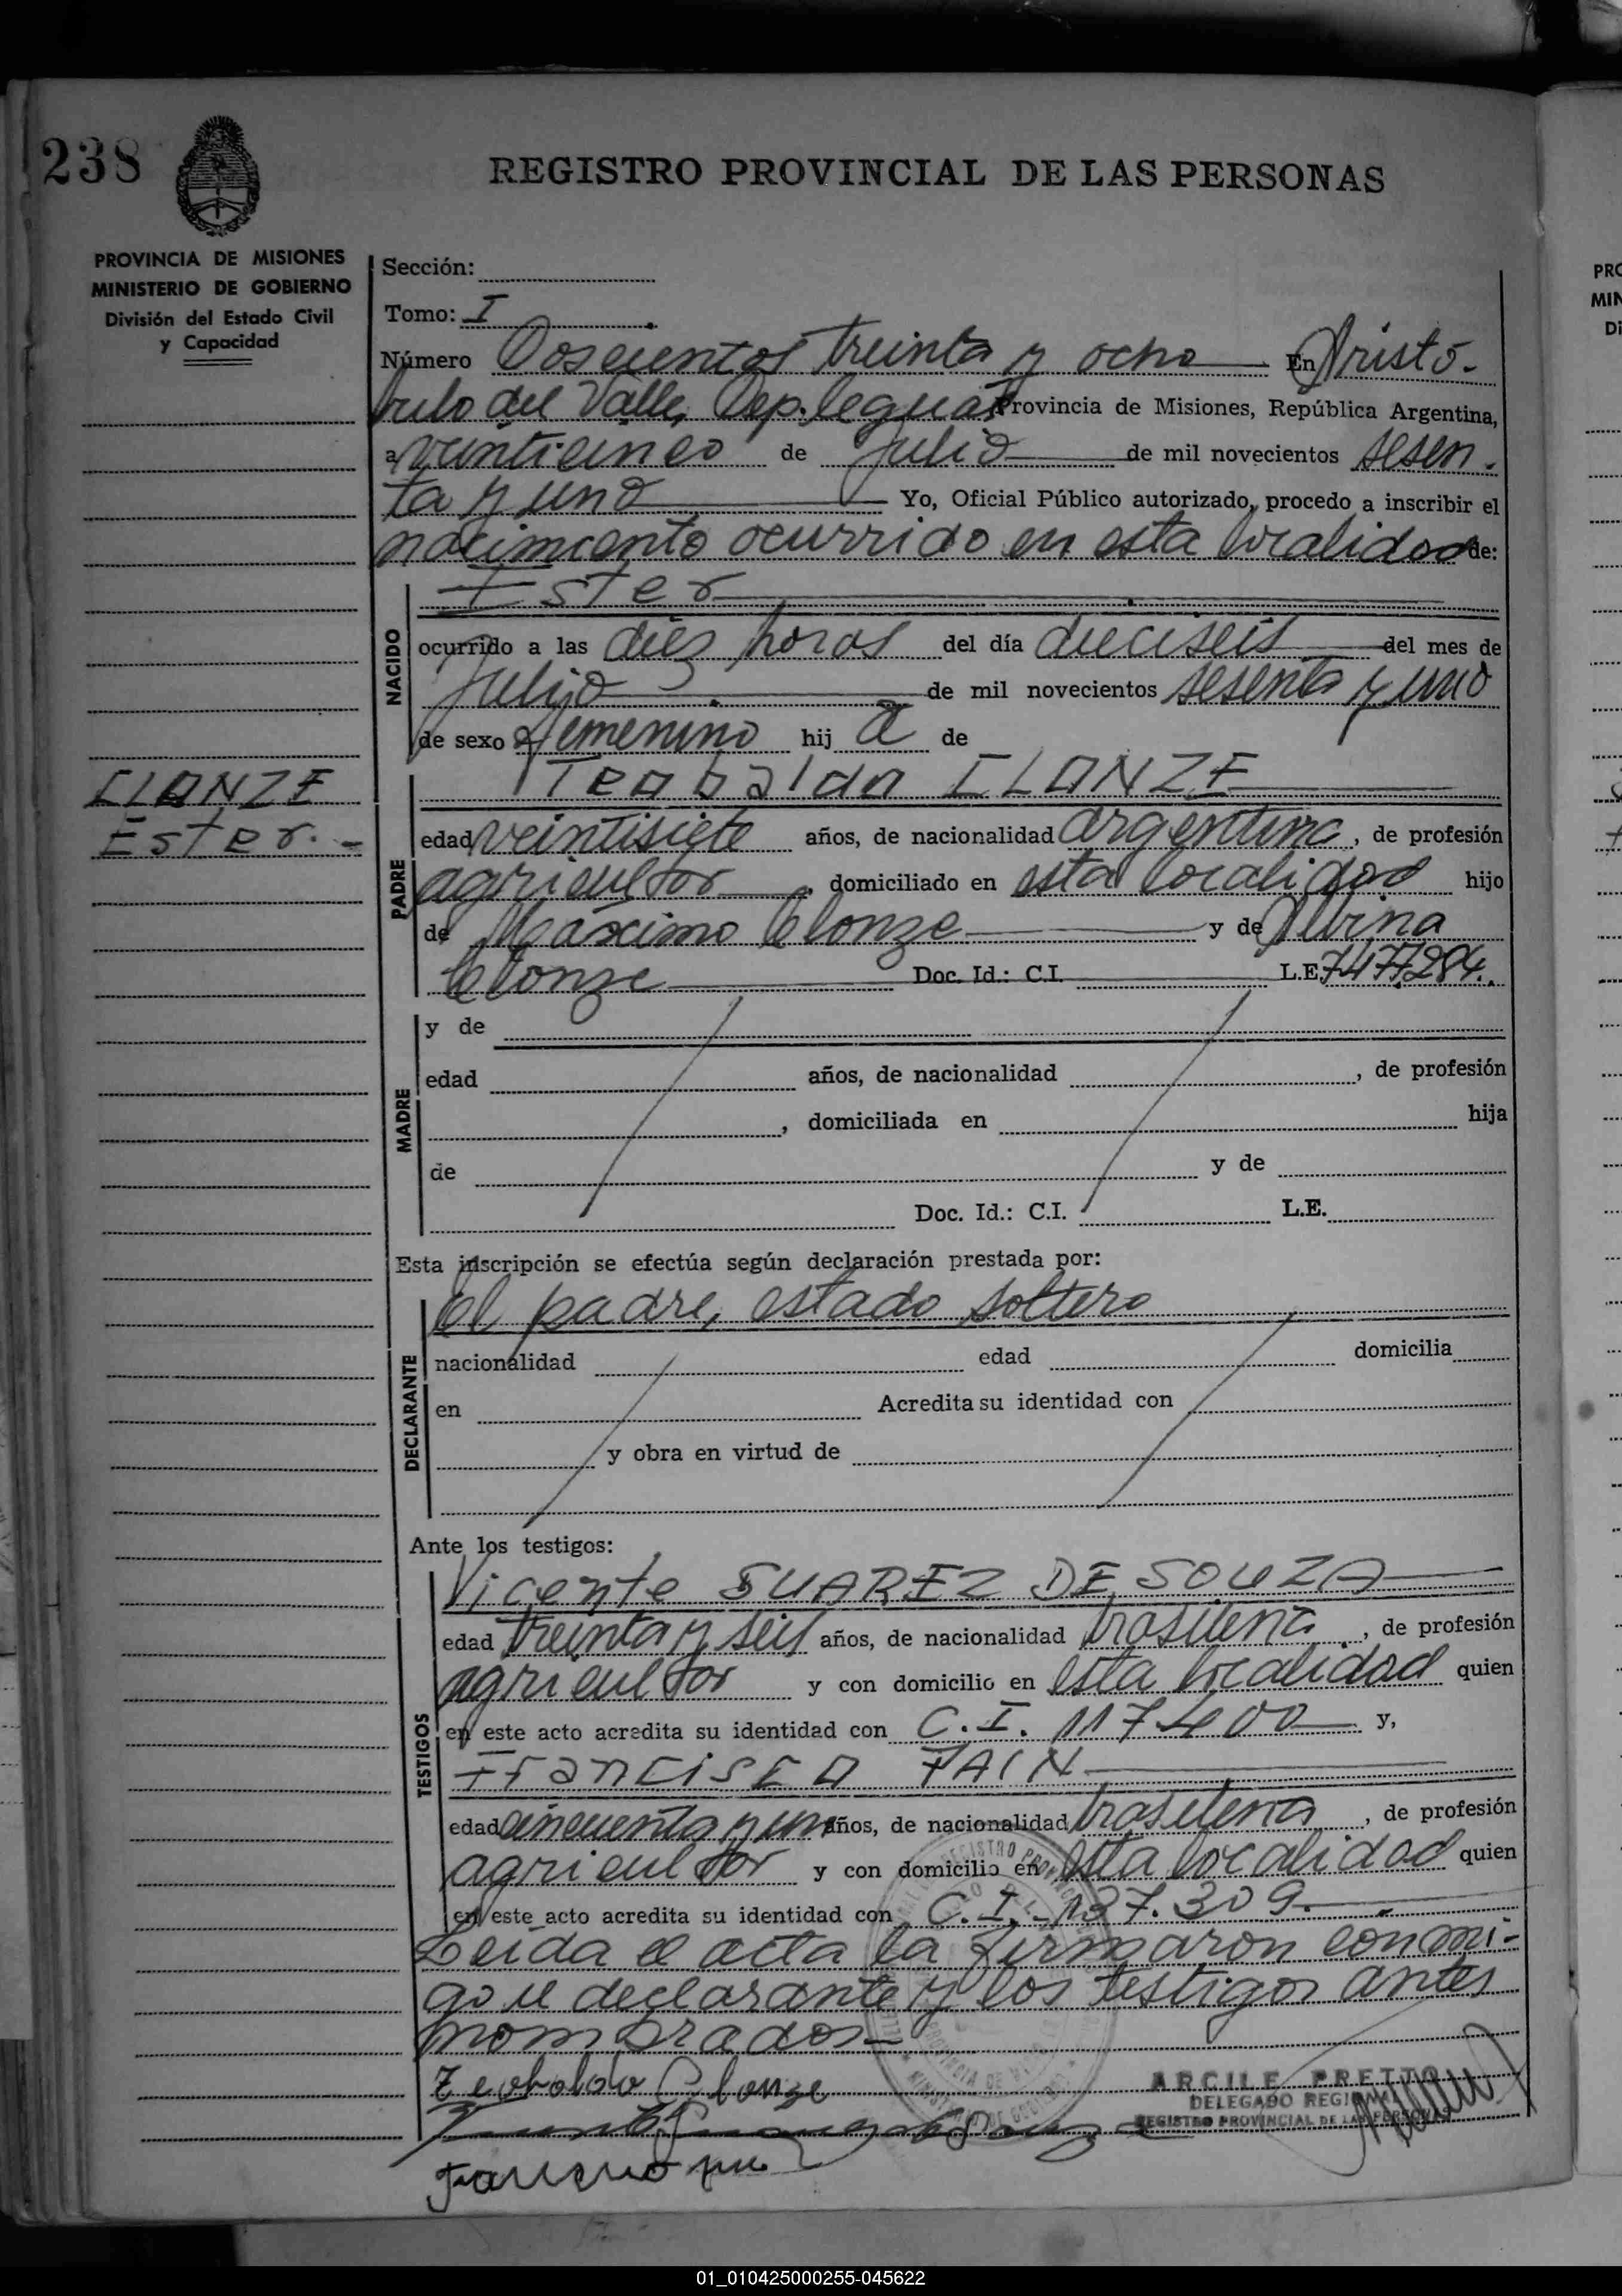 238
REGISTRO PROVINCIAL DE LAS PERSONAS
PROVINCIA DE MISIONES
MINISTERIO DE GOBIERNO
División del Estado Civil
y Capacidad
Sección:
Tomo: I
Número Doscientos treinta y ocho En Aristó-
bulo del Valle, Dep. Provincia de Misiones, República Argentina,
a veinticinco de julio de mil novecientos sesen-
ta y uno Yo, Oficial Público autorizado, procedo a inscribir el
nacimiento ocurrido en esta localidad de:
NACIDO
Ester
ocurrido a las diez horas del día dieciseis del mes de
Julio de mil novecientos sesenta y uno
de sexo femenino hij a de
Teobaldo CLONZE
CLONZE
Ester.-
PADRE
edad veintisiete años, de nacionalidad argentina, de profesión
agricultor, domiciliado en esta localidad hijo
de Máximo Clonze y de Albina
Clonze Doc. Id.: C.I. L.E. 7477284.
MADRE
y de
edad años, de nacionalidad , de profesión
, domiciliada en hija
de y de
Doc. Id.: C.I. L.E.
Esta inscripción se efectúa según declaración prestada por:
DECLARANTE
El padre, estado soltero
nacionalidad edad domicilia
en Acredita su identidad con
y obra en virtud de
Ante los testigos:
TESTIGOS
Vicente SUAREZ DE SOUZA
edad treinta y seis años, de nacionalidad brasileña, de profesión
agricultor y con domicilio en esta localidad quien
en este acto acredita su identidad con C.I. 117400 y,
Francisco PAIN
edad cincuenta y un años, de nacionalidad brasileña, de profesión
agricultor y con domicilio en esta localidad quien
en este acto acredita su identidad con C.I. 137.309.
Leida el acta la firmaron conmi-
go el declarante y los testigos antes
nombrados
Teobaldo Clonze
ARCILE PRETTO
DELEGADO REGIONAL
REGISTRO PROVINCIAL DE LAS PERSONAS
01_010425000255-045622